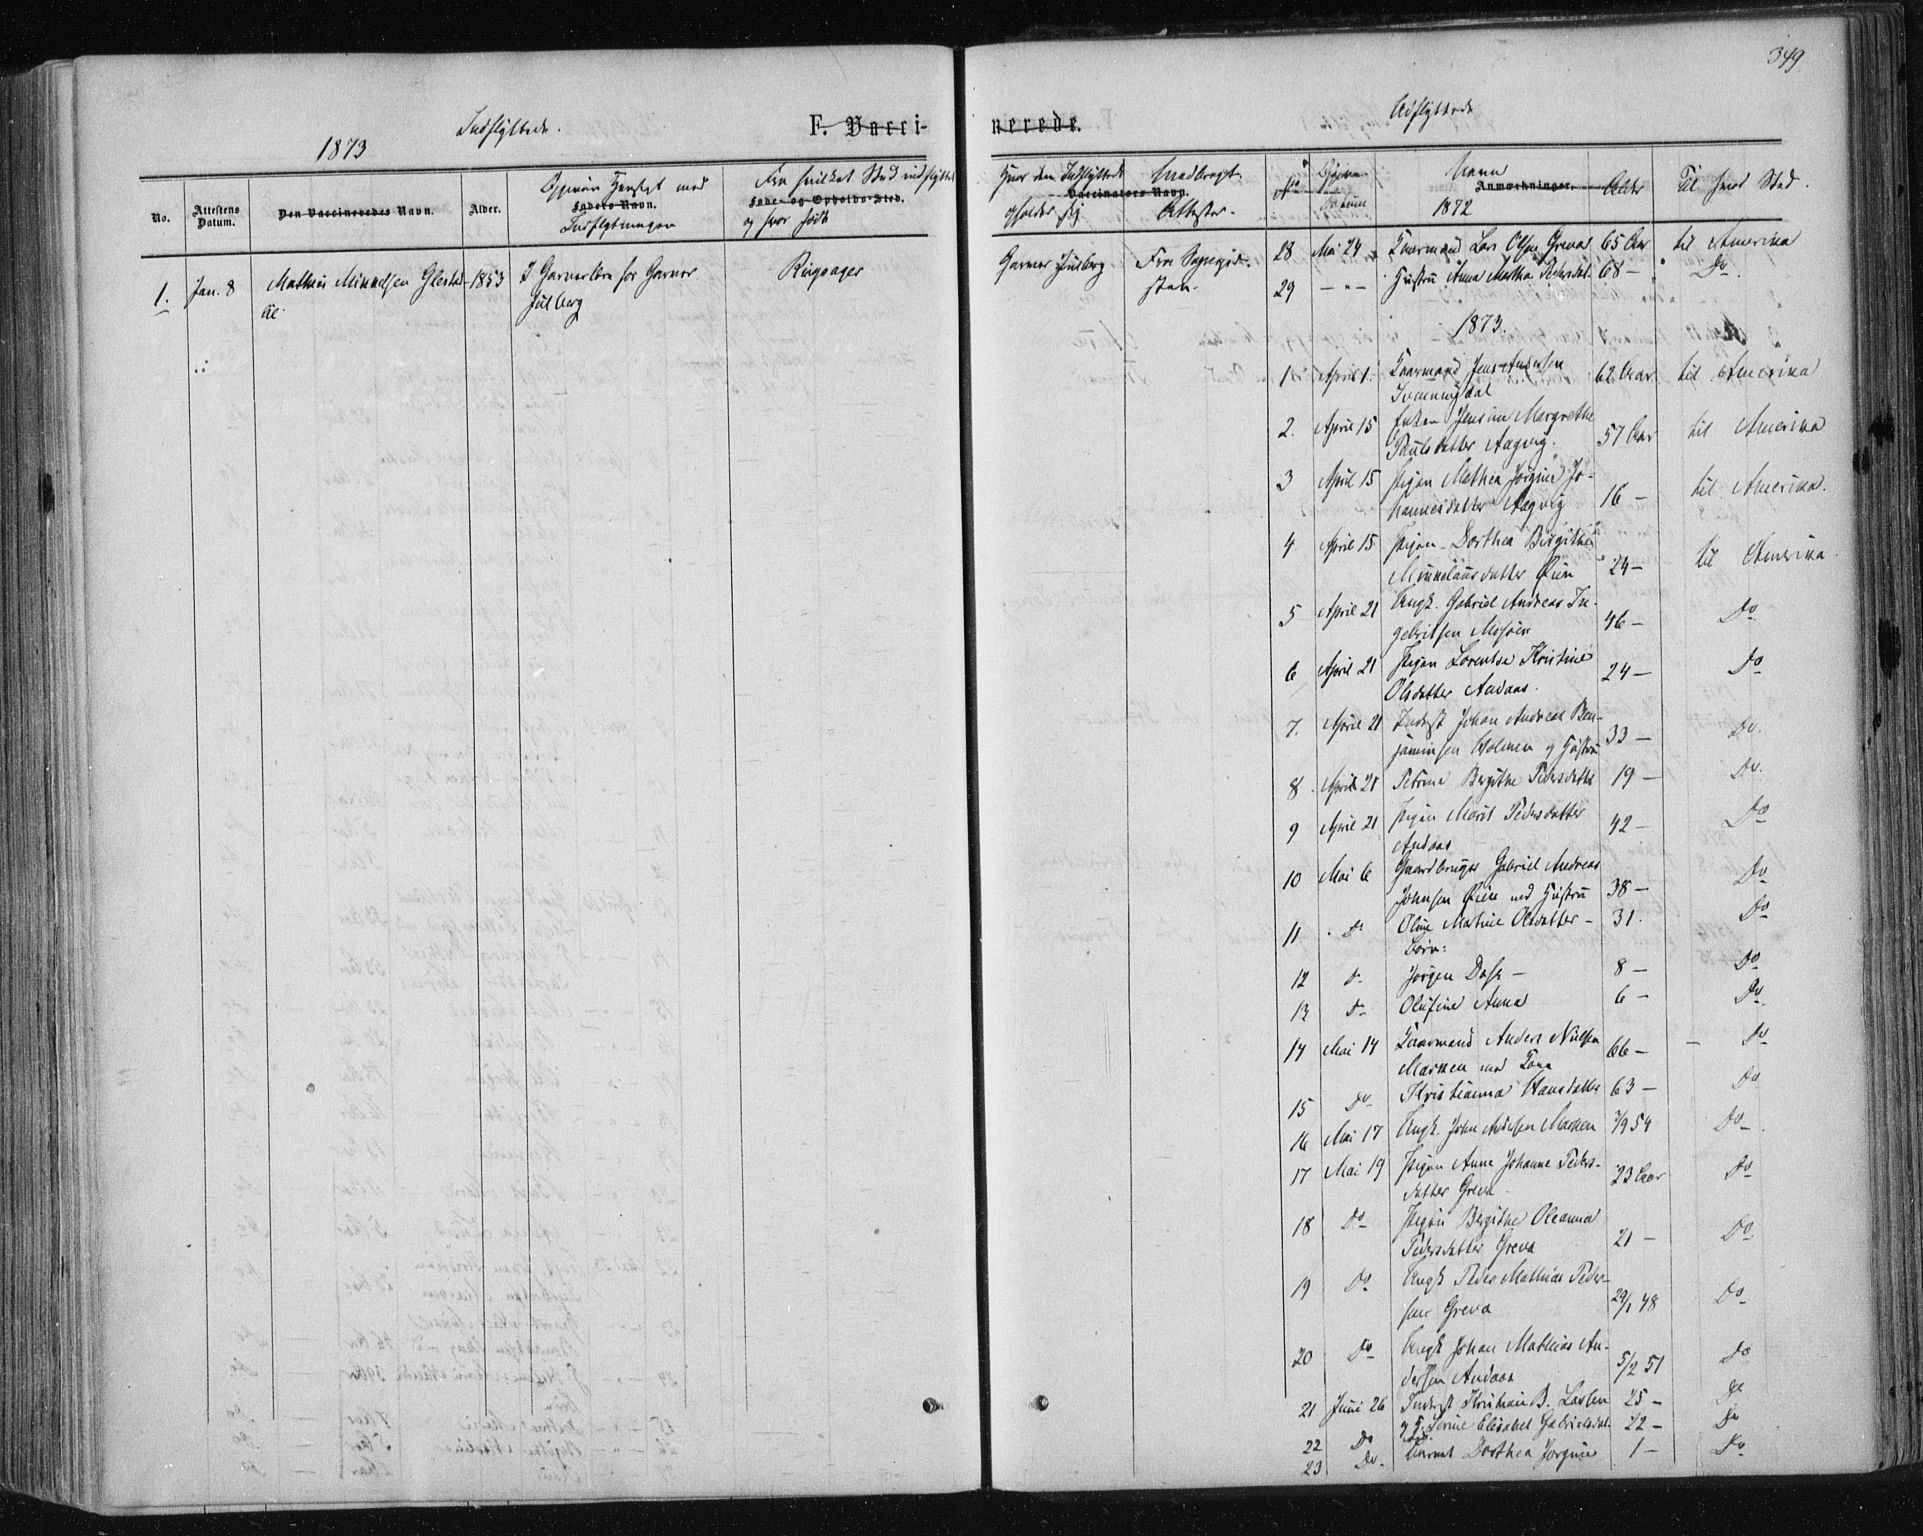 349
Indflyttede.
F. Vacci-
nerede.
Udflyttede
1873
No.
Attestens Datum.
Den Vaccineredes Navn.
Alder.
Faders Navn.
Indflytningen
Fra hvilket Sted indflyttet
Føde- og Opholds-Sted.
og hvor født
Hvor den Indflyttede
opholder sig
Vaccinators Navn.
Medbragt
Attester.
No
Datum
Navn
Anmærkninger.
1872
Alder
Til hvad Sted.
1. Jan. 8 Mathias Mikkelsen 1853 I Garverlære hos Garver Ringsager Garver Julberg
Julberg
28 Mai 24 Kaarmand Lars Olsen Greva 65 Aar til Amerika
29 — " — Hustru Anna Martha Pedersdat. 68 — Do
1873.
1 April 1. Kaarmand Jens Andersen 62 Aar til Amerika
2. April 15 Enken Jensine Margrethe
Paulsdatter Aagvig. 57 Aar til Amerika
3 April 15 Pigen Mathea Jørgine Jo-
hannesdatter Aagvig 16 — til Amerika.
4 April 15 Pigen Dorthea Birgitha
Øien 24 — til Amerika.
5 April 21 Ungk. Gabriel Andreas In-
gebritsen Mosøen 46 — Do
6 April 21 Pigen Lorentse Kristine
Olsdatter Andaas. 24 — Do
7. April 21 Inderst Johan Andreas Ben-
jaminsen Holmen og Hustru 33 — Do.
8 April 21 Petrine Bergithe Pedersdatter 19 — Do.
9 April 21 Pigen Marit Pedersdatter
Andaas 42 — Do
10 Mai 6 Gaardbruger Gabriel Andreas
Johnsen Øien med Hustru 38 — Do
11 Do Oline Martine Olsdatter — 31. Do
Børn:
12 Do Jørgen — 8 — Do
13 Do Olufine Anna 6 — Do
14 Mai 14 Kaarmand Anders Nielsen
Marken med Kone 66 — Do
15 Do Kristianna Hansdatter 63 — Do
16 Mai 17 Ungk. John Andersen Marken 54 Do
17 Mai 19 Pigen Anne Johanne Peders-
datter Greva 23 Aar Do
18 Do Pigen Bergithe Oleanna
Pedersdatter Greva 21 — Do
19 Do Ungk Peder Mathias Peder-
sen Greva 29/1 48 Do
20 Do Ungk Johan Mathias An-
dersen Andaas 5/2 51 Do
21 Juni 26 Inderst Kristian B. Larsen 25 — Do
22 Do Serine Elisabet Gabrielsdat. 22 — Do
23 Do. Barnet Dorthea Jørgine 1 — Do